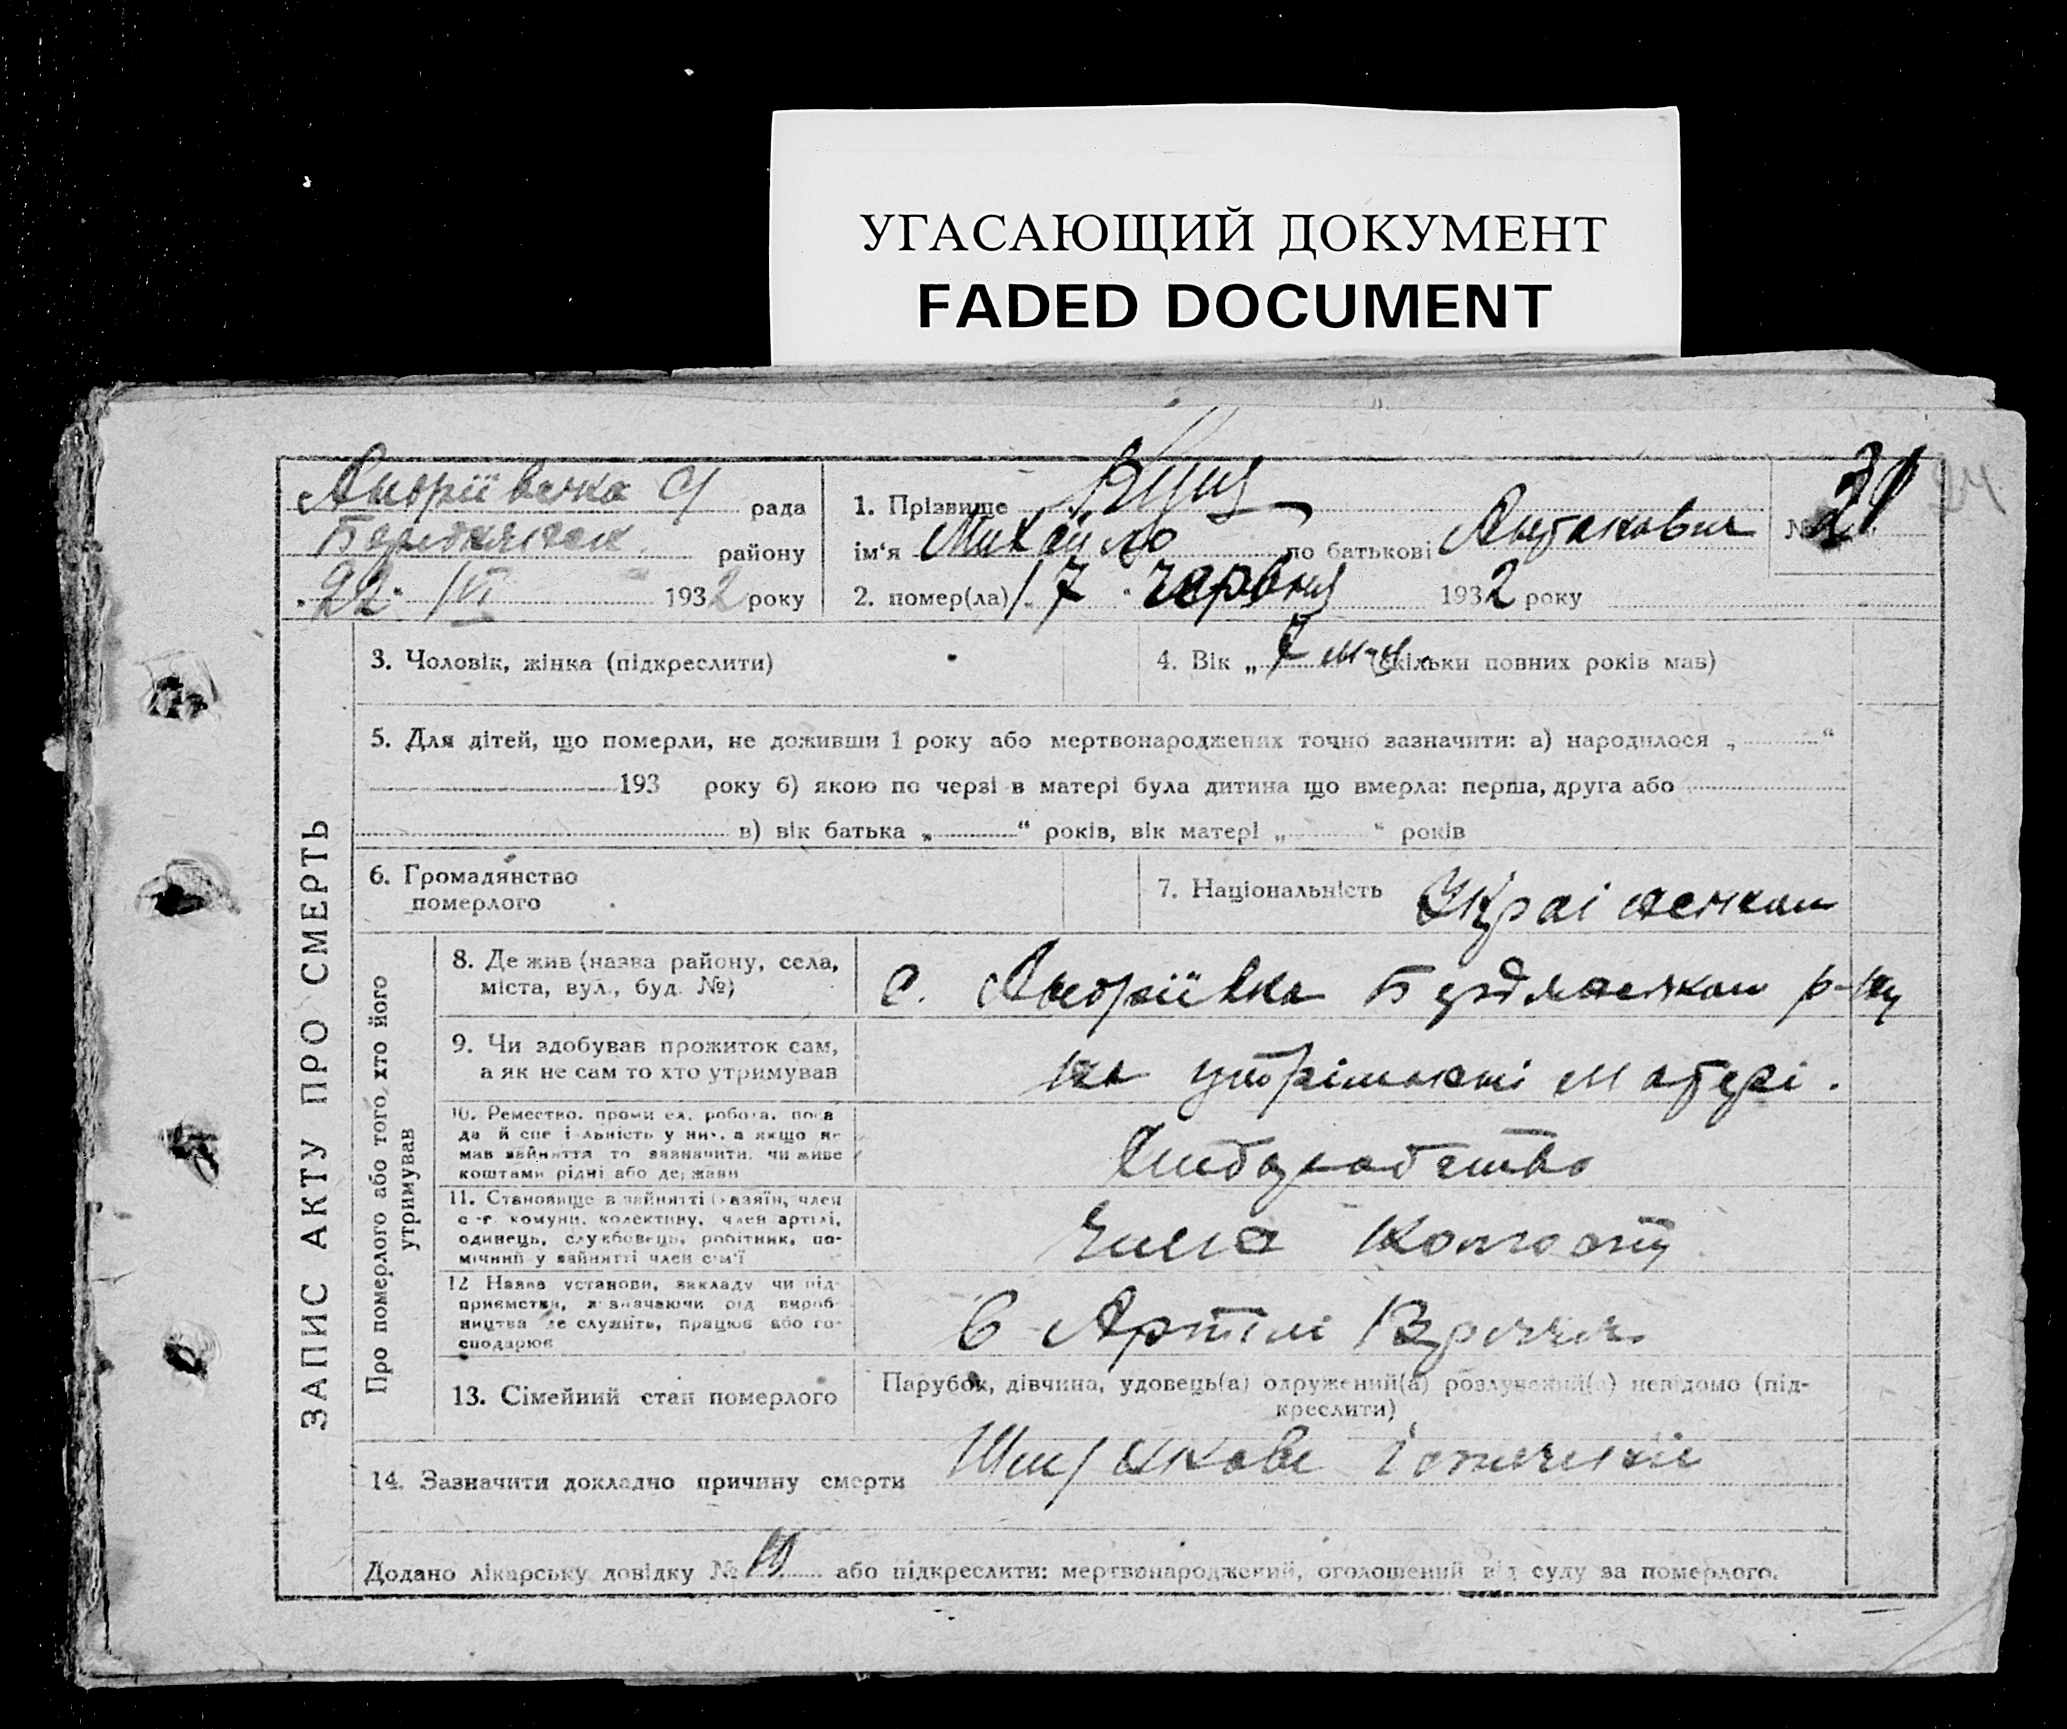 УГАСАЮЩИЙ ДОКУМЕНТ
FADED DOCUMENT
Андріївська с/ рада
Бердянськ. району
"22" VI 1932 року
1. Прізвище Кущ
ім‘я Михайло по батькові № 21 24
2. помер(ла) 17 червня 1932 року
ЗАПИС АКТУ ПРО СМЕРТЬ
3. Чоловік, жінка (підкреслити)
4. Вік „ (скільки повних років мав)
5. Для дітей, що померли, не доживши 1 року або мертвонароджених точно зазначити: а) народилося „ “
193 року б) якою по черзі в матері була дитина що вмерла: перша, друга або
в) вік батька „ “ років, вік матері „ “ років
6. Громадянство
померлого
7. Національність Украінська
Про померлого або того, хто його
утримував
8. Де жив (назва району, села,
міста, вул., буд. №)
с. Андріївка Бердянськ р-ну
9. Чи здобував прожиток сам,
а як не сам то хто утримував
на утрімані матері.
10. Ремество, промисел, робота, поса
да й спеціальність у них, а якщо не
мав зайняття то зазначити, чи живе
коштами рідні або держави
Хліборобство
11. Становище в зайнятті (хазяїн, член
с-г комуни, колективу, член артілі,
одинець, службовець, робітник, по-
мічний у зайнятті член сім'ї
Член
12 Назва установи, закладу чи під-
приємства, зазначаючи рід вироб-
ництва де служить, працює або го-
сподарює
в Артілі
13. Сімейний стан померлого
Парубок, дівчина, удовець(а) одружений(а) розлучений(а) невідомо (під-
креслити)
14. Зазначити докладно причину смерти
Додано лікарську довідку № 19 або підкреслити: мертвонароджений, оголошений від суду за померлого.